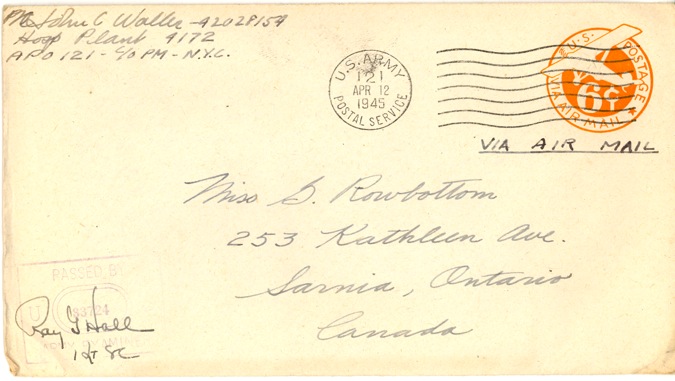 Pfc John C Waller - 42028154
Hosp Plant 4172
APO 121 - C/O PM - N.Y.C.
U.S. ARMY
121
APR 12
1945
POSTAL SERVICE
U.S. POSTAGE
6¢
VIA AIR MAIL
VIA AIR MAIL
Miss G. Rowbottom
253 Kathleen Ave.
Sarnia, Ontario
Canada
PASSED B
U
33724
ARMY EXAMINE
Ray G Hall
1st